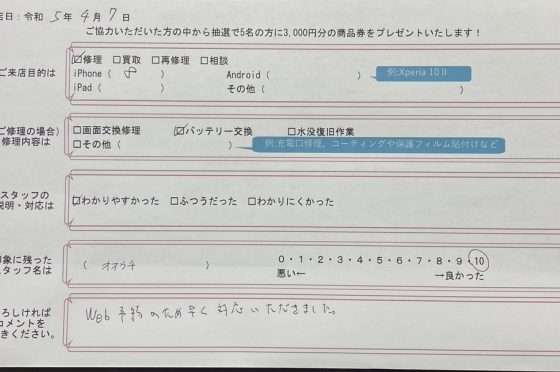 店日：令和 5年 4月 7日
ご協力いただいた方の中から抽選で5名の方に3,000円分の商品券をプレゼントいたします！
ご来店目的は
☑修理 □買取 □再修理 □相談
iPhone（ 8 ） Android（ ） 例:Xperia 10Ⅱ
iPad（ ） その他（ ）
ご修理の場合）
修理内容は
□画面交換修理 ☑バッテリー交換 □水没復旧作業
□その他（ ） 例:充電口修理、コーティングや保護フィルム貼付けなど
スタッフの
説明・対応は
☑わかりやすかった □ふつうだった □わかりにくかった
印象に残った
スタッフ名は
（ オオウチ ）
0・1・2・3・4・5・6・7・8・9・10
悪い← →良かった
ろしければ
コメントを
きください。
Web予約のため早く対応いただきました。